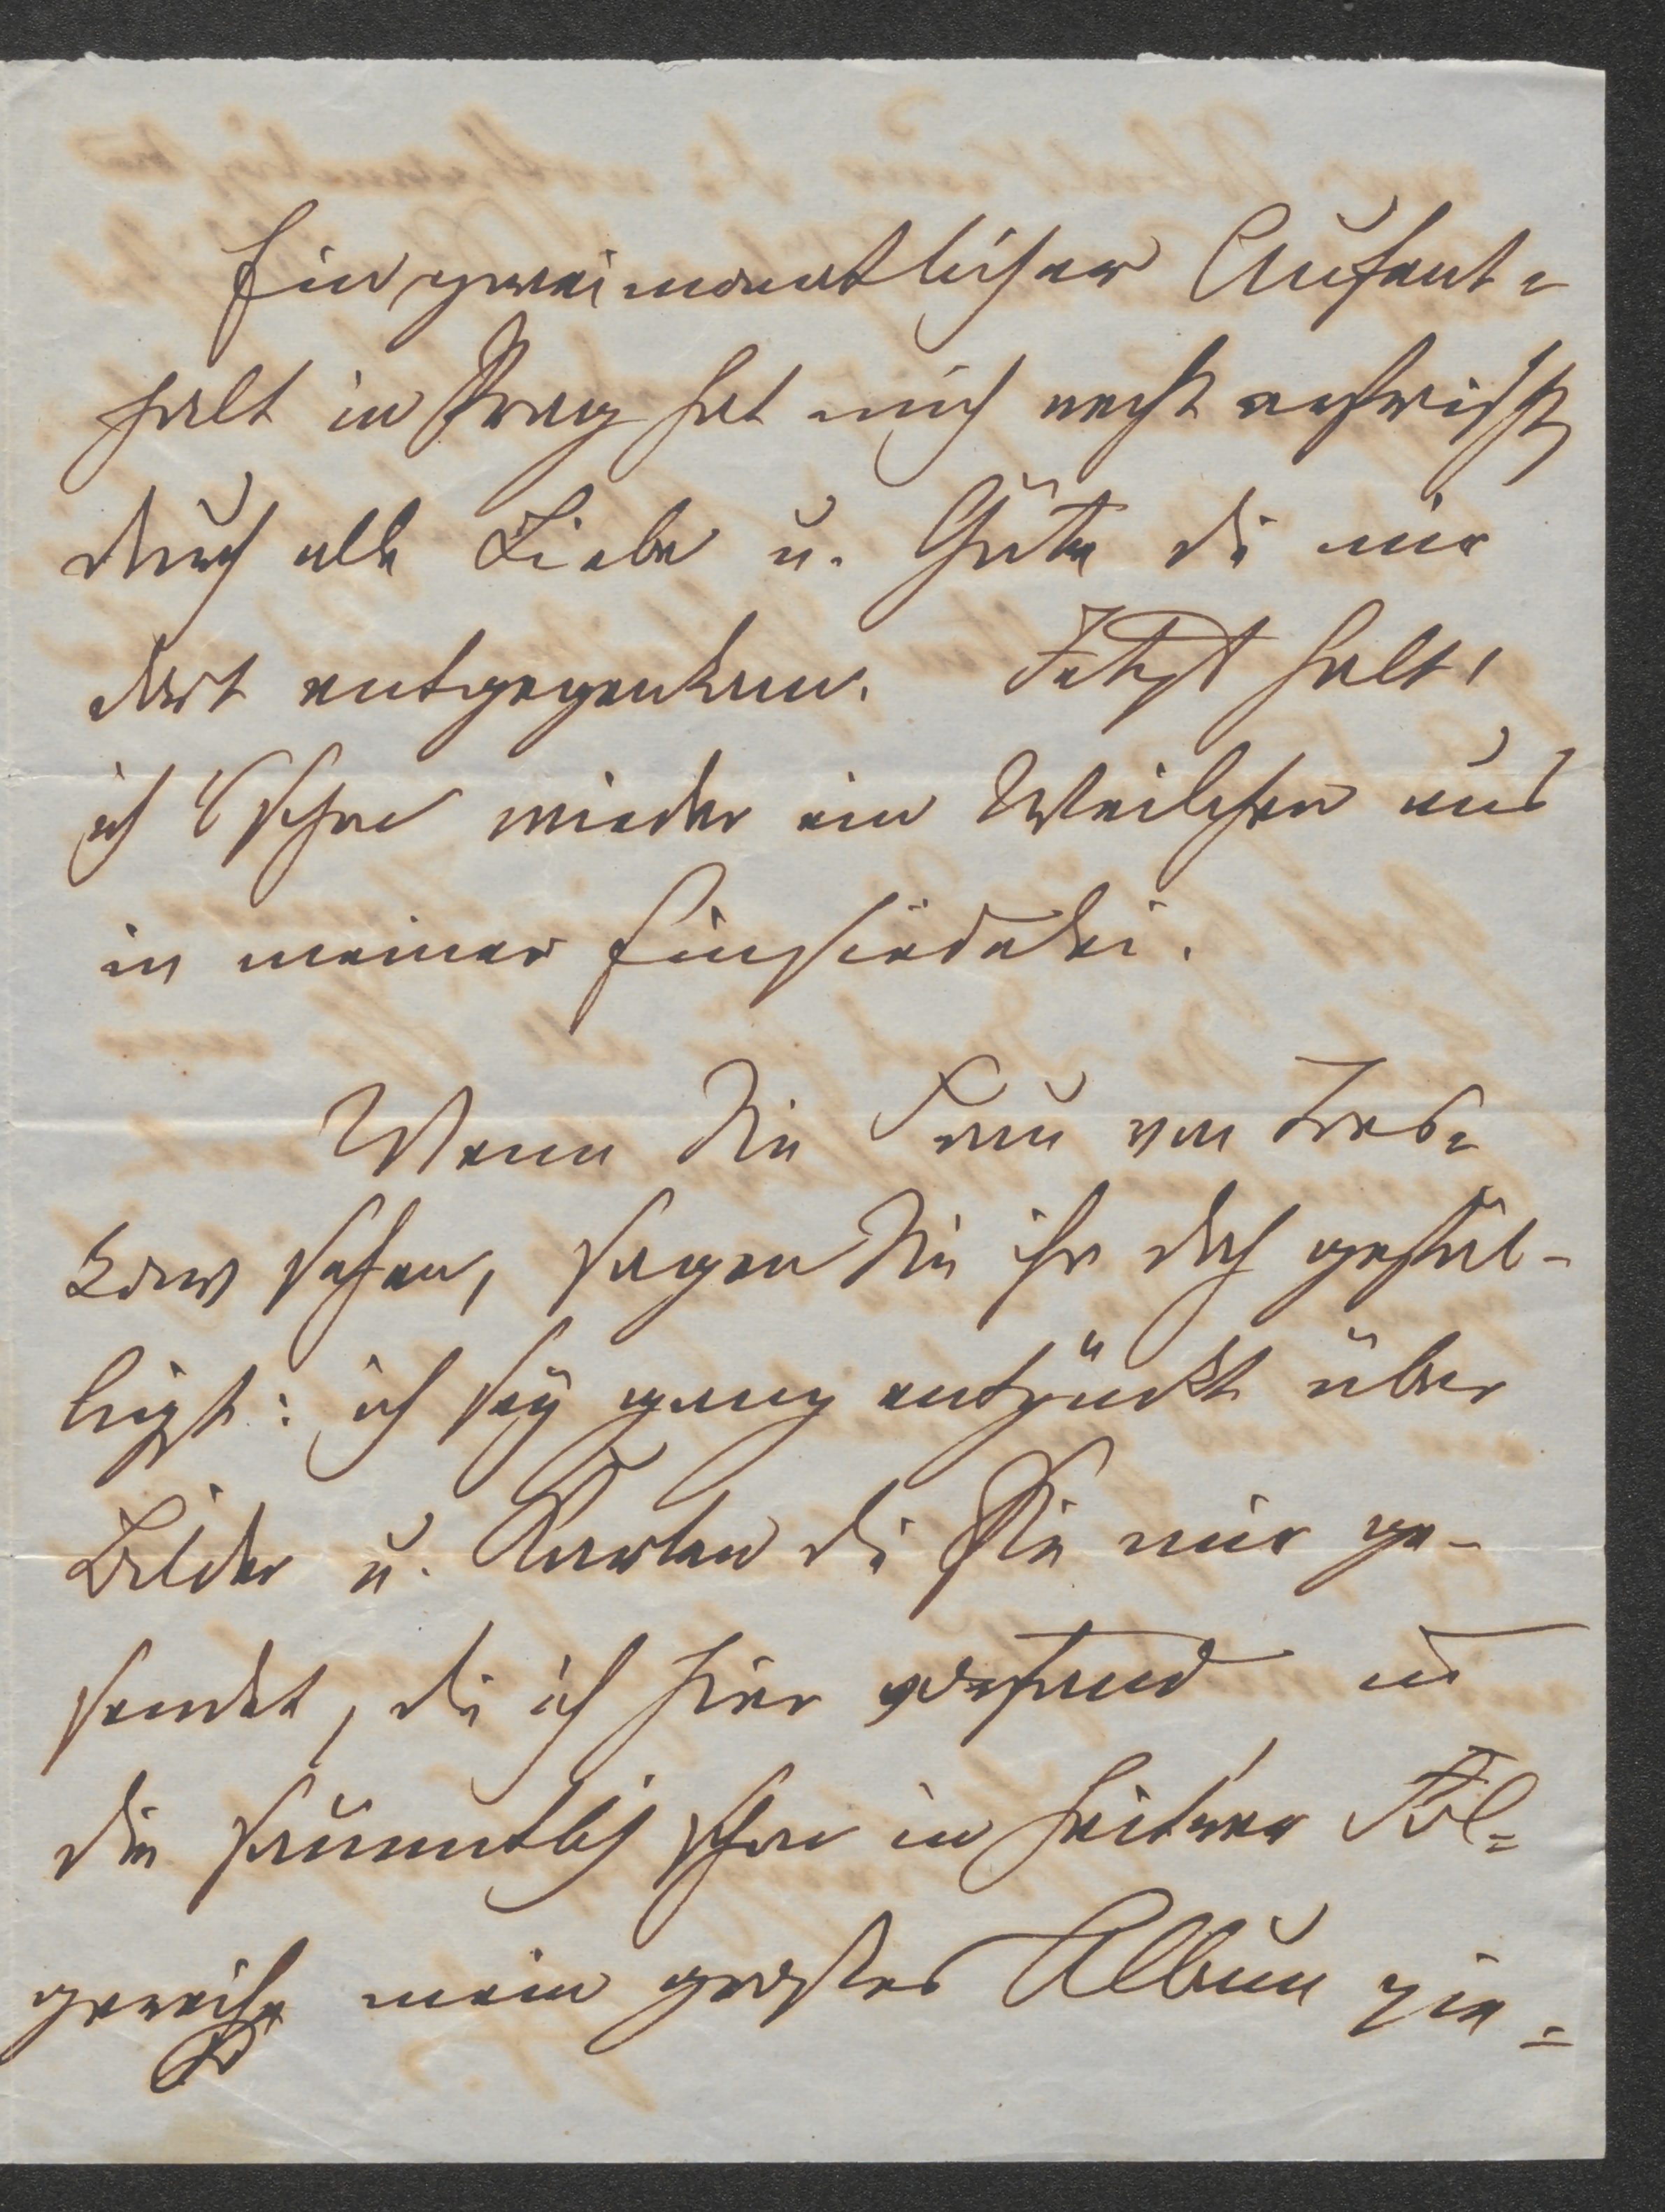 Ein zweimonatlicher Aufent=
halt in Prag hat mich recht erfrischt
durch alle Liebe u. Güte die mir
dort entgegenkam. Jetzt halt'
ich schon wieder ein Weilchen aus
in meiner Einsiedelei.
Wenn Sie Frau von Tres=
kow sehen, sagen Sie ihr doch gefäl-
ligst: ich sey ganz entzückt über
Bilder u. Karten die Sie mir ge-
sendet, die ich hier vorfand und
die sämmtlich schon in heit'rer Fol=
gereihe mein großes Album zie=